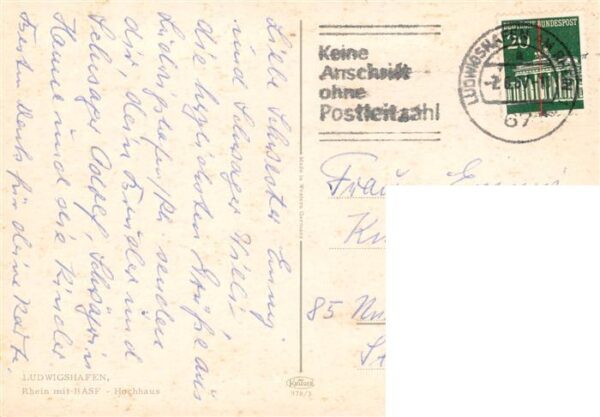 Liebe Schwester Emmy.
und Schwager Willi
die herzlichsten Grüße aus
Ludwigshafen/Rh. senden
dir, dein Bruder und
Schwager Adolf, Schwägerin
Hanne und die Kinder
Besten Dank für deine Karte.
LUDWIGSHAFEN,
Rhein mit BASF - Hochhaus
Made in Western Germany
Krüger
178/3
Keine
Anschrift
ohne
Postleitzahl
LUDWIGSHAFEN
67
20
BUNDESPOST
Frau
85